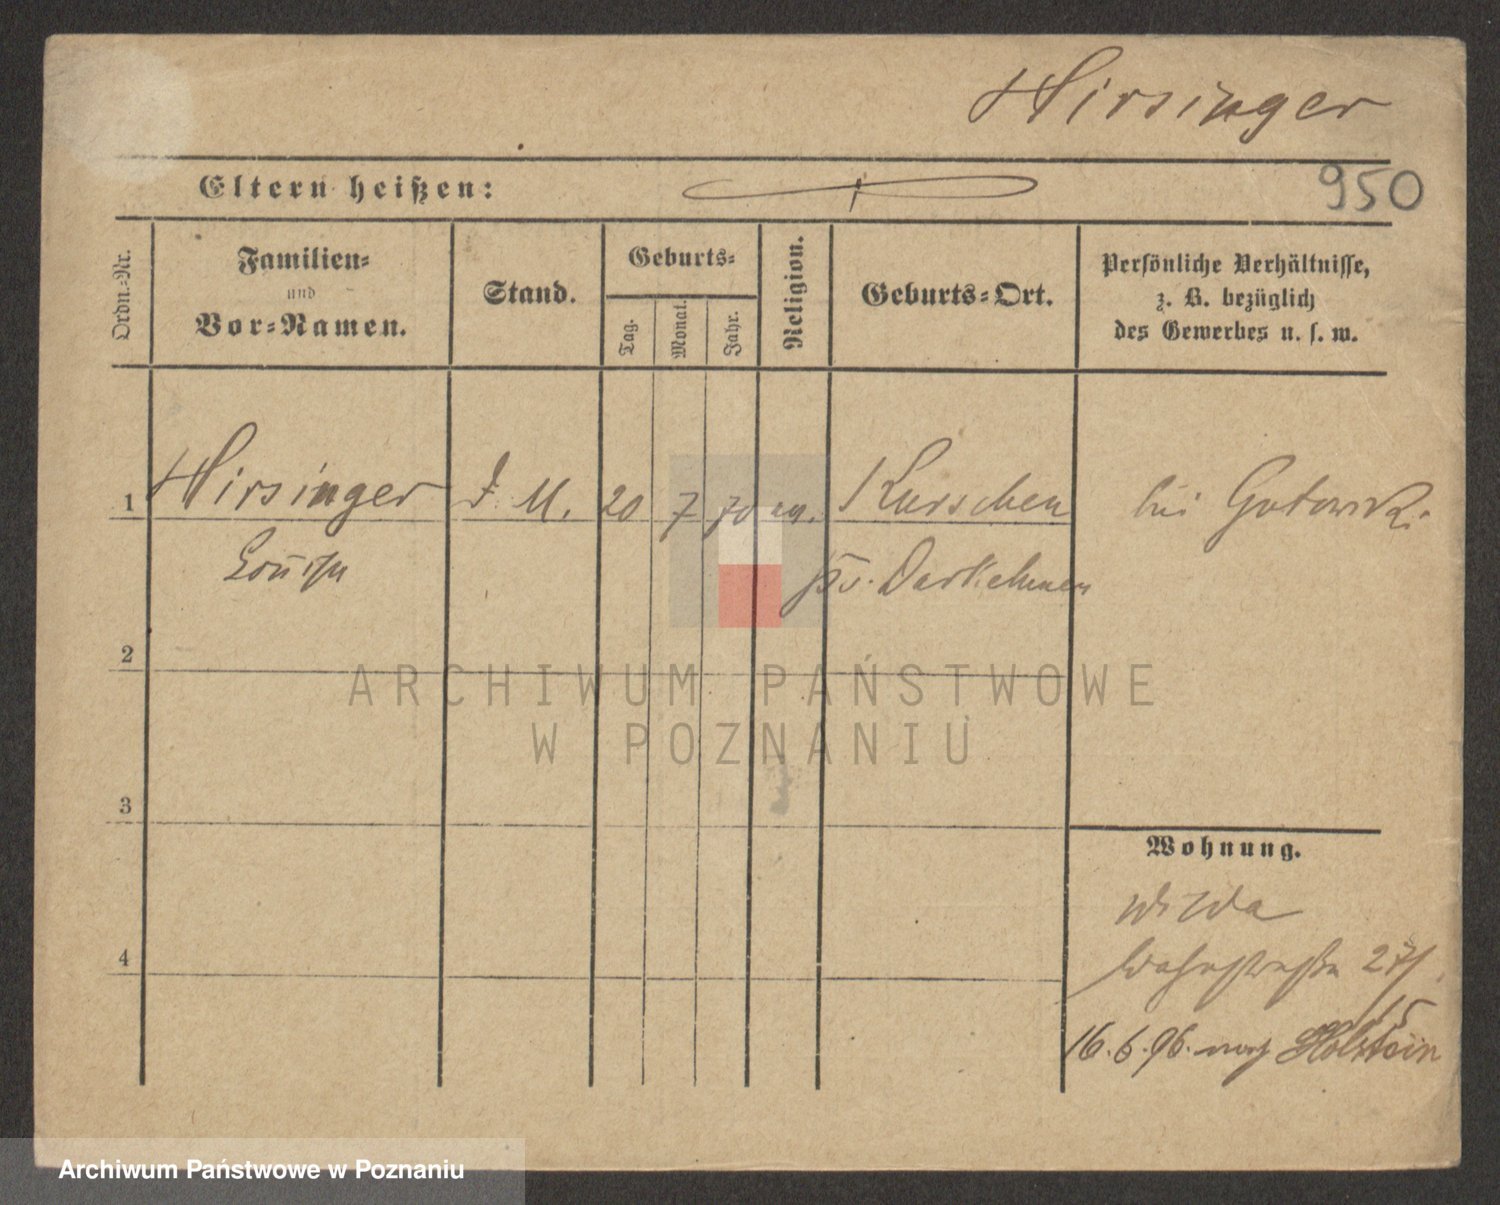 Hirsinger
Eltern heißen:
950
Ordn.-Nr.
Familien-
und
Vor-Namen.
Stand.
Geburts-
Tag.
Monat.
Jahr.
Religion.
Geburts-Ort.
Persönliche Verhältnisse,
z. B. bezüglich
des Gewerbes u. s. w.
1 Hirsinger D. M. 20 7 70 ev. Kurschen bei Gotowski
Louise Kr. Darkehmen
2
ARCHIWUM PAŃSTWOWE
W POZNANIU
3
Wohnung.
Wilda
4
27
15
16.6.96. nach Holstein
Archiwum Państwowe w Poznaniu